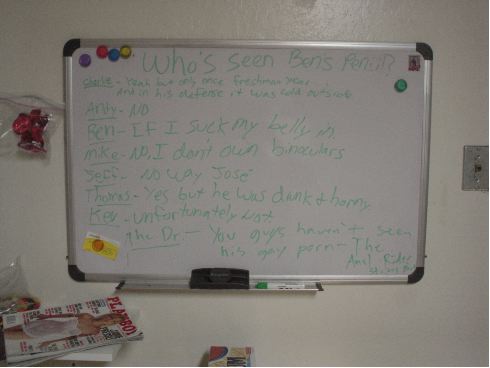 Who's seen Ben's Penis?
Charlie - Yeah but only once freshman year...
And in his defense it was cold outside.
Andy - NO
Ben - IF I suck my belly in
Mike - NO, I don't own binoculars
Jeff - NO way José
Thomas - Yes but he was drunk & horny
Kev - unfortunately not
The Dr. - You guys haven't seen
his gay porn - The
Anal Rider
PLAYBOY